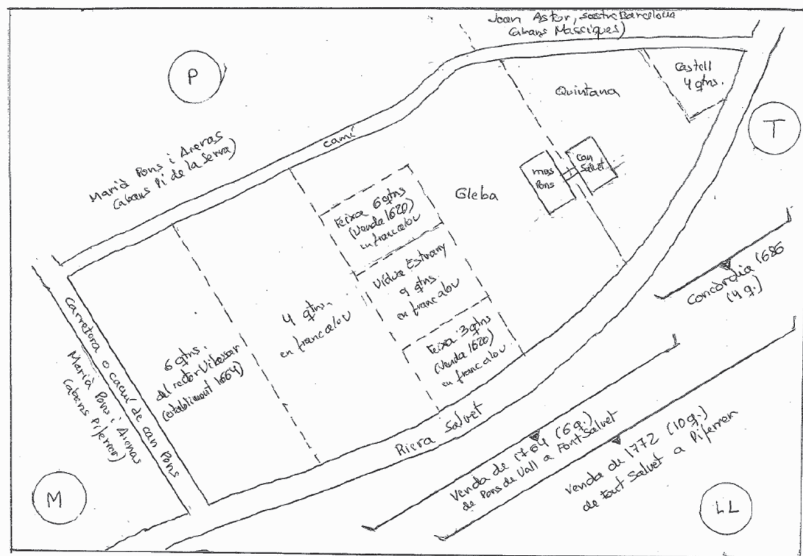 Joan Astor, sastre Barcelona
(abans Massiques)
P
Castell
4 qtns.
Quintana
T
camí
Marià Pons i Arenas
(abans Pi de la Serra)
mas
Pons
can
Salvet
Gleba
Feixa 6 qtns
(Venda 1620)
en franc alou
Vídua Estrany
9 qtns.
en franc alou
4 qtns.
en franc alou
Feixa 3 qtns
(Venda 1620)
en franc alou
6 qtns.
del rector Vilassar
(establiment 1664)
Concòrdia 1686
(4 q.)
Carretera o camí de can Pons
Marià Pons i Arenas
(abans Piferrer)
Riera Salvet
Venda de 1764 (6 q.)
de Pons de Vall a Font Salvet
Venda de 1772 (10 q.)
de Font Salvet a Piferrer
M
LL